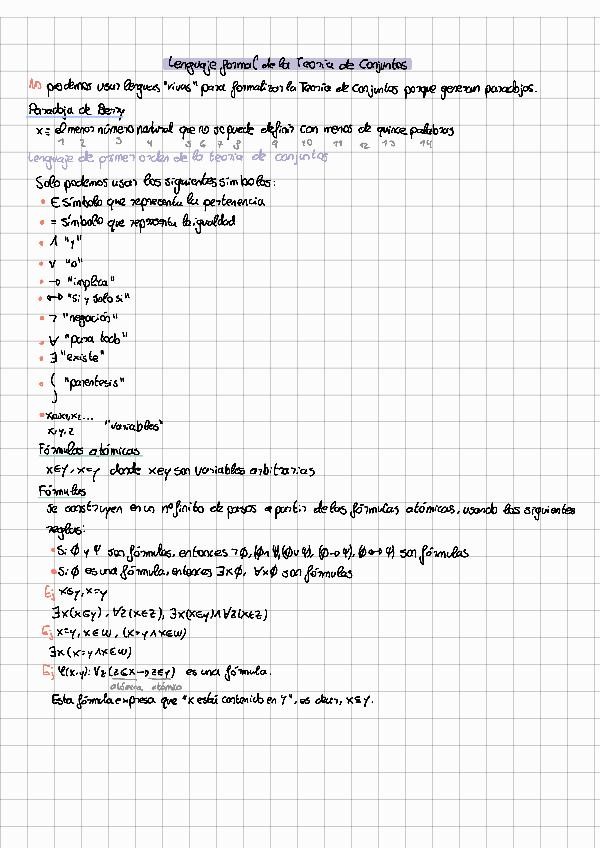 Lenguaje formal de la Teoría de Conjuntos
No podemos usar lenguas "vivas" para formalizar la Teoría de Conjuntos porque generan paradojas.
Paradoja de Berry
x = el menor número natural que no se puede definir con menos de quince palabras
1 2 3 4 5 6 7 8 9 10 11 12 13 14
Lenguaje de primer orden de la teoría de conjuntos
Solo podemos usar los siguientes símbolos:
• ∈ símbolo que representa la pertenencia
• = símbolo que representa la igualdad
• ∧ "y"
• ∨ "o"
• → "implica"
• ↔ "si y solo si"
• ¬ "negación"
• ∀ "para todo"
• ∃ "existe"
• ( "parentesis"
)
• x₀,x₁,x₂...
x,y,z "variables"
Fórmulas atómicas
x∈y, x=y donde x e y son variables arbitrarias
Fórmulas
Se construyen en un nº finito de pasos a partir de las fórmulas atómicas, usando las siguientes
reglas:
• Si φ y ψ son fórmulas, entonces ¬φ, (φ∧ψ), (φ∨ψ), (φ→ψ), (φ↔ψ) son fórmulas
• Si φ es una fórmula, entonces ∃xφ, ∀xφ son fórmulas
Ej x∈y, x=y
∃x(x∈y), ∀z(x∈z), ∃x(x∈y)∧∀z(x∈z)
Ej x=y, x∈w, (x=y∧x∈w)
∃x(x=y∧x∈w)
Ej φ(x,y): ∀z(z∈x→z∈y) es una fórmula.
atómica atómica
Esta fórmula expresa que "x está contenido en y", es decir, x⊆y.